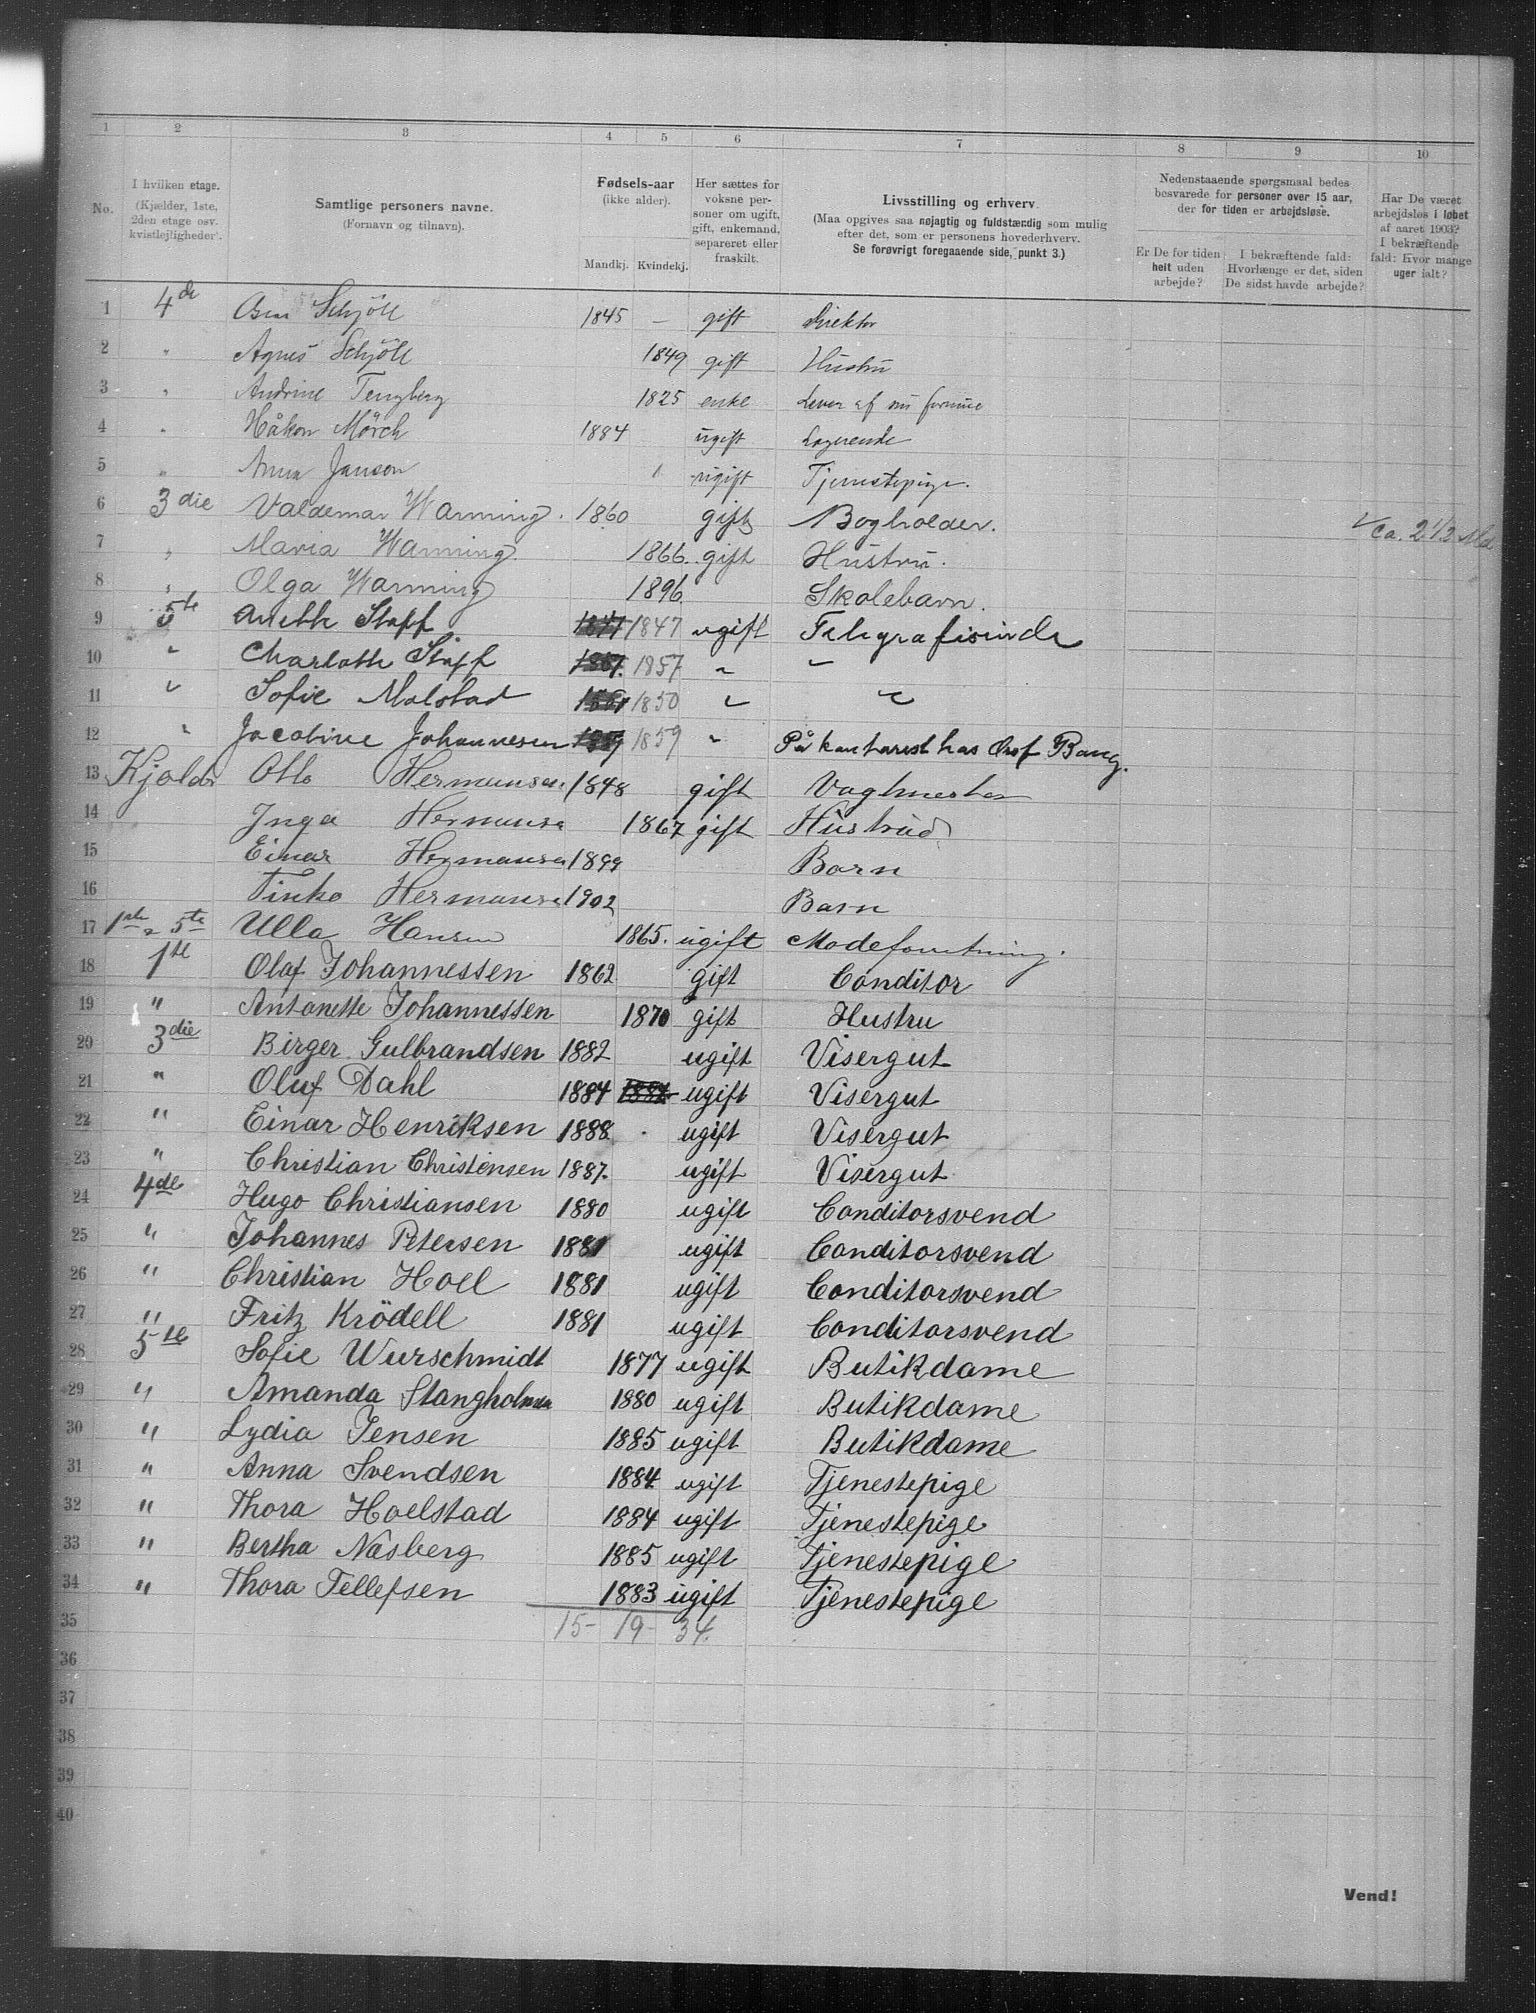 1 2 3 4 5 6 7 8 9 10
No.
I hvilken etage.
(Kjælder, 1ste,
2den etage osv.
kvistlejligheder).
Samtlige personers navne.
(Fornavn og tilnavn).
Fødsels-aar
(ikke alder).
Mandkj. Kvindekj.
Her sættes for
voksne per-
soner om ugift,
gift, enkemand,
separeret eller
fraskilt.
Livsstilling og erhverv
(Maa opgives saa nøjagtig og fuldstændig som mulig
efter det, som er personens hovederhverv.
Se forøvrigt foregaaende side, punkt 3.)
Nedenstaaende spørgsmaal bedes
besvarede for personer over 15 aar,
der for tiden er arbejdsløse.
Er De for tiden
helt uden
arbejde?
I bekræftende fald:
Hvorlænge er det, siden
De sidst havde arbejde?
Har De været
arbejdsløs i løbet
af aaret 1903?
I bekræftende
fald: hvor mange
uger ialt?
1 4de Schjöll 1845 – gift Direktør
2 " Agnes Schjöll 1849 gift Hustru
3 " Andrine Tengberg 1825 enke Lever af sin formue
4 " Håkon Mörch 1884 ugift Logerende
5 " Anna Janson ugift Tjenestepige.
6 3die Valdemar Warming. 1860 gift Bogholder. ca. 2 1/2 Md
7 " Maria Warming 1866. gift Hustru.
8 " Olga Warming 1896. Skolebarn.
9 5te Anette Stoff 1847 1847 ugift Telegrafistinde
10 " Charlotte Stoff 1857. 1857 " "
11 " Sofie Molstad 1850 " "
12 " Jacobine Johannesen 1859 1859 " På kontorist hos Olaf Bang.
13 Kjelder Otto Hermansen 1848 gift Vagtmester
14 Inga Hermanse 1867 gift Hustrud
15 Einar Hermanse 1899 Barn
16 Finko Hermanse 1902 Barn
17 1ste & 5te Ulla Hansen 1865. ugift Modeforretning.
18 1ste Olaf Johannessen 1862 gift Conditor
19 " Antonette Johannessen 1870 gift Hustru
20 3die Birger Gulbrandsen 1882 ugift Visergut
21 " Oluf Dahl 1884 1884 ugift Visergut
22 " Einar Henriksen 1888. ugift Visergut
23 " Christian Christensen 1887. ugift Visergut
24 4de Hugo Christiansen 1880 ugift Conditorsvend
25 " Johannes Petersen 1881 ugift Conditorsvend
26 " Christian Hoel 1881 ugift Conditorsvend
27 " Fritz Krödell 1881 ugift Conditorsvend
28 5te Sofie Wurschmidt 1877 ugift Butikdame
29 " Amanda Stangholmen 1880 ugift Butikdame
30 " Lydia Jensen 1885 ugift Butikdame
31 " Anna Svendsen 1884 ugift Tjenestepige
32 " Thora Hoelstad 1884 ugift Tjenestepige
33 " Bertha Næsberg 1885 ugift Tjenestepige
34 " Thora Tellefsen 1883 ugift Tjenestepige
35 15 – 19 – 34.
36
37
38
39
40
Vend!